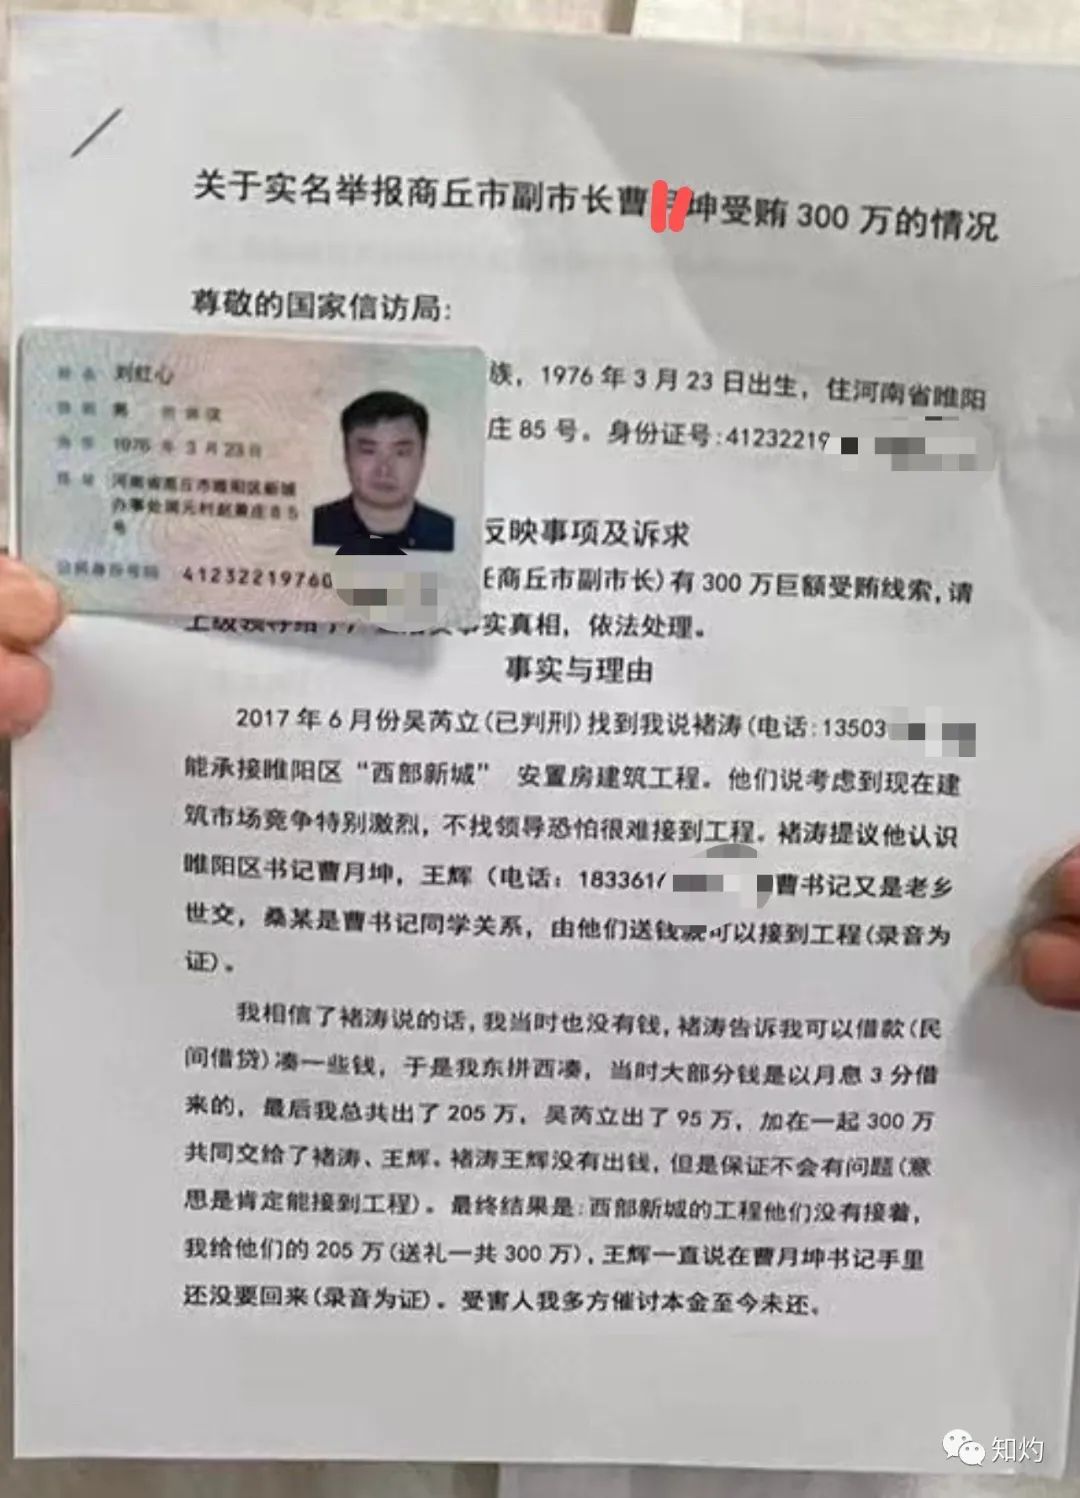 关于实名举报商丘市副市长曹 坤受贿 300 万的情况
尊敬的国家信访局:
族，1976 年 3 月 23 日出生，住河南省睢阳
庄 85 号。身份证号:41232219
姓名 刘红心
性别 男 民族 汉
出生 1976 年 3 月 23 日
住址 河南省商丘市睢阳区新城
办事处 元村赵 庄８５
号
公民身份号码 4123221976
反映事项及诉求
任商丘市副市长)有 300 万巨额受贿线索,请
上级领导给予 实真相，依法处理。
事实与理由
2017 年 6 月份吴芮立(已判刑)找到我说褚涛(电话:13503
能承接睢阳区“西部新城” 安置房建筑工程。他们说考虑到现在建
筑市场竞争特别激烈，不找领导恐怕很难接到工程。褚涛提议他认识
睢阳区书记曹月坤，王辉（电话：183361 曹书记又是老乡
世交，桑某是曹书记同学关系，由他们送钱就可以接到工程(录音为
证)。
我相信了褚涛说的话,我当时也没有钱,褚涛告诉我可以借款(民
间借贷)凑一些钱，于是我东拼西凑，当时大部分钱是以月息 3 分借
来的，最后我总共出了 205 万，吴芮立出了 95 万，加在一起 300 万
共同交给了褚涛、王辉。褚涛王辉没有出钱,但是保证不会有问题(意
思是肯定能接到工程)。最终结果是:西部新城的工程他们没有接着，
我给他们的 205 万(送礼一共 300 万),王辉一直说在曹月坤书记手里
还没要回来(录音为证)。受害人我多方催讨本金至今未还。
知灼